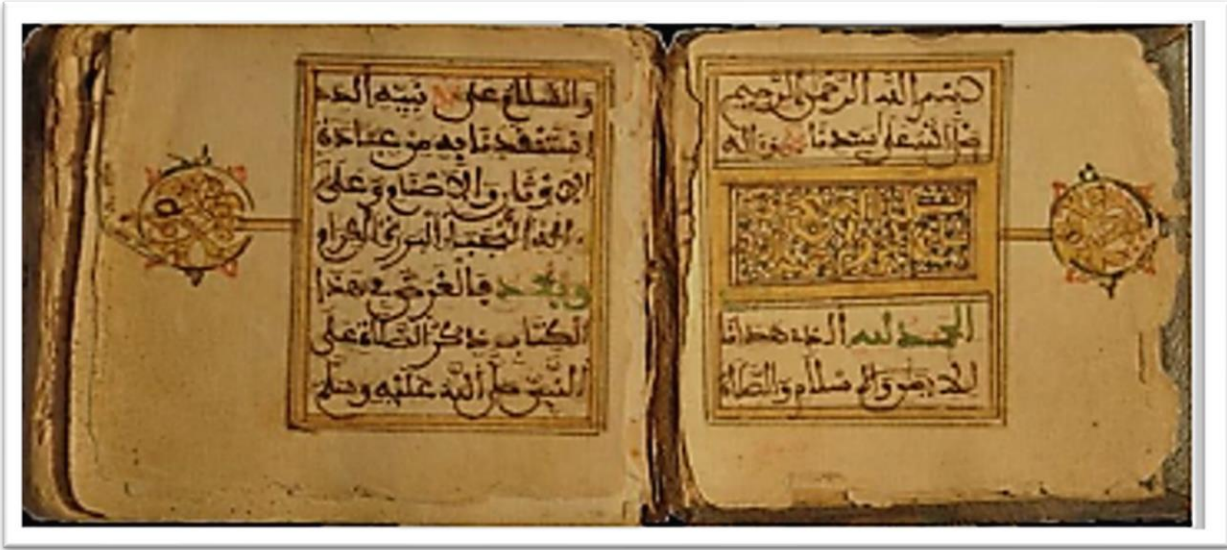 بسم الله الرحمن الرحيم
صلى الله على سيدنا محمد وآله
الحمد لله الذي هدانا
للايمان والاسلام والصلاة
والسلام على محمد نبيه الذي
استنقذنا به من عبادة
الاوثان والاصنام وعلى
آله النجباء البررة الكرام
وبعد فالغرض في هذا
الكتاب ذكر الصلاة على
النبي صلى الله عليه وسلم